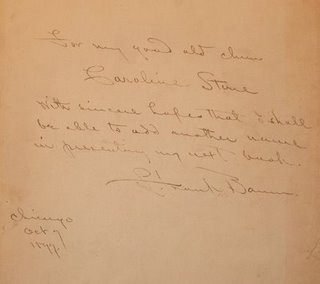 For my good old chum
Caroline Stone
with sincere hopes that I shall
be able to add another name
in presenting my next book.
L. Frank Baum.
Chicago
Oct 7
1899.